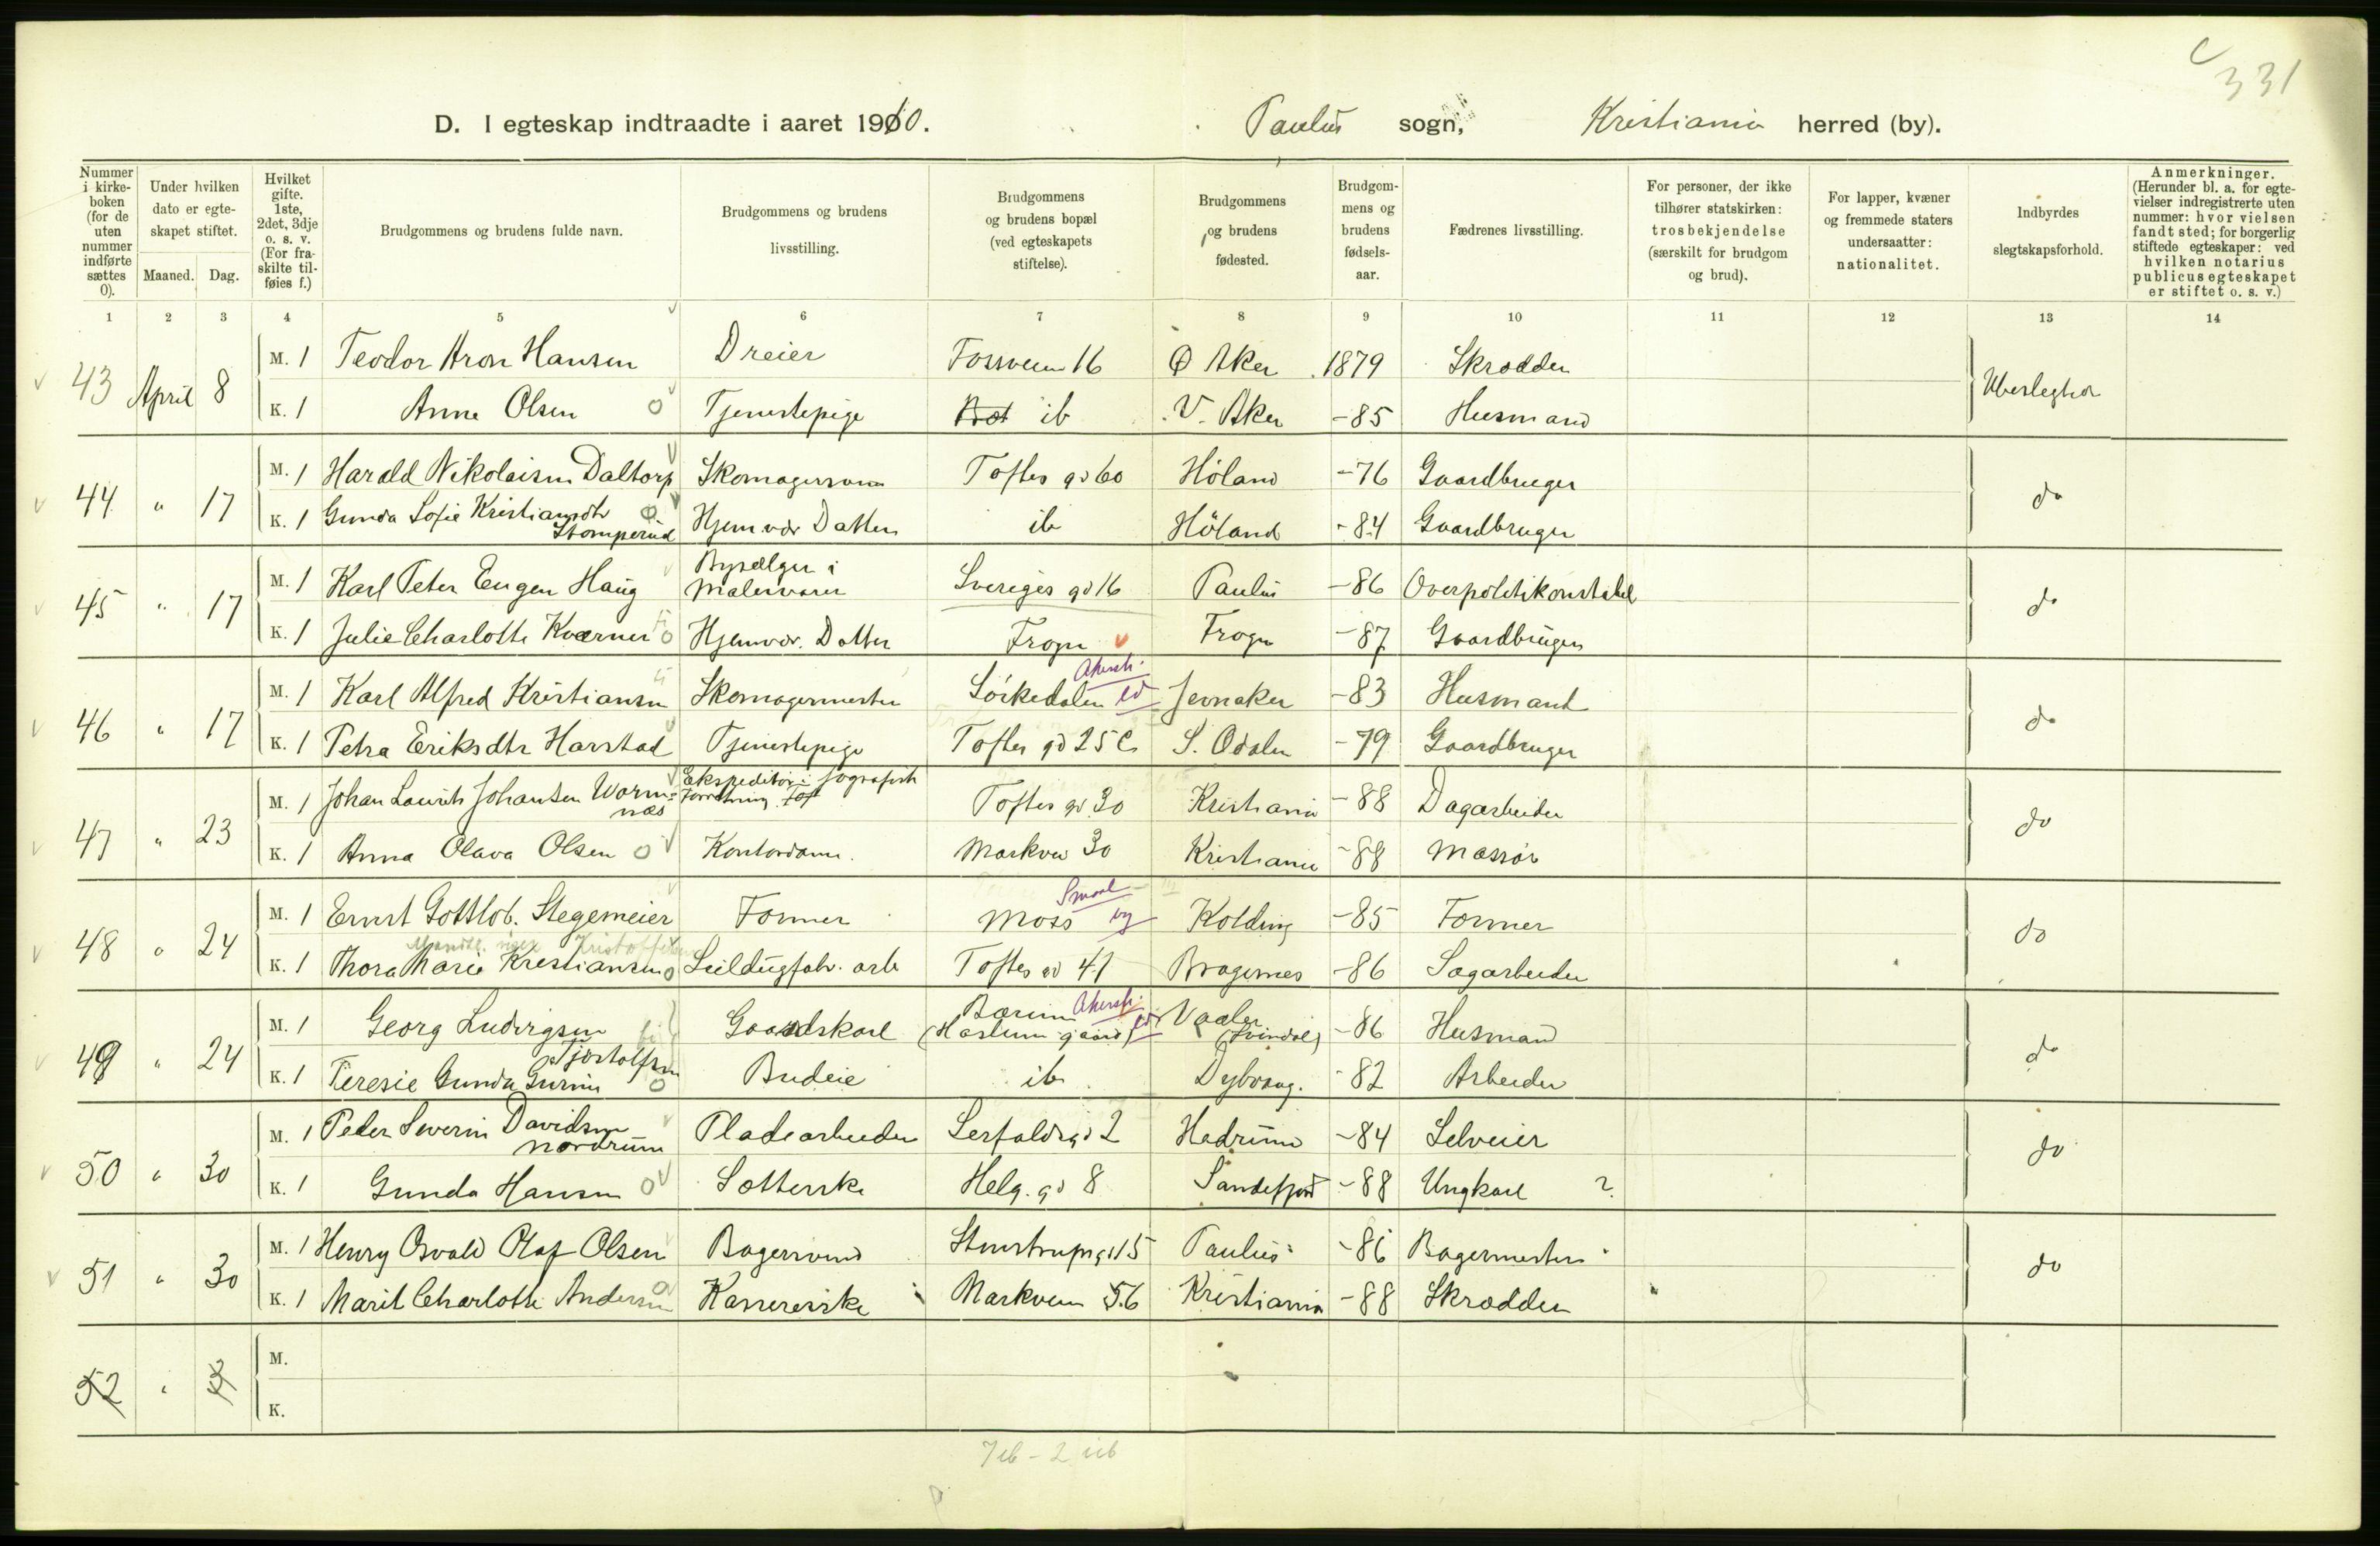 C
331
D. I egteskap indtraadte i aaret 1910. Paulus sogn, Kristiania herred (by).
Nummer i kirke-boken (for de uten nummer indførte sættes 0).
Under hvilken dato er egte-skapet stiftet.
Maaned. Dag.
Hvilket gifte. 1ste, 2det, 3dje o. s. v. (For fra-skilte til-føies f.)
Brudgommens og brudens fulde navn.
Brudgommens og brudens livsstilling.
Brudgommens og brudens bopæl (ved egteskapets stiftelse).
Brudgommens og brudens fødested.
Brudgom-mens og brudens fødsels-aar.
Fædrenes livsstilling.
For personer, der ikke tilhører statskirken: trosbekjendelse (særskilt for brudgom og brud).
For lapper, kvæner og fremmede staters undersaatter: nationalitet.
Indbyrdes slegtskapsforhold.
Anmerkninger. (Herunder bl. a. for egte-vielser indregistrerte uten nummer: hvor vielsen fandt sted; for borgerlig stiftede egteskaper: ved hvilken notarius publicus egteskapet er stiftet o. s. v.)
1 2 3 4 5 6 7 8 9 10 11 12 13 14
43 April 8 M. 1 Teodor Aron Hansen Dreier Fossveien 16 Ø Aker 1879 Skrædder Ubeslegtet
K. 1 Anne Olsen Tjenestepige ib V. Aker -85 Husmand
44 " 17 M. 1 Harald Nikolaisen Daltorp Skomagersvend Toftes gd 60 Høland -76 Gaardbruger do
K. 1 Gunda Sofie Kristiansdtr Stomperud Hjemmev Datter ib Høland -84 Gaardbruger
45 " 17 M. 1 Karl Peter Eugen Haug Bysælger i Malervarer Sveriges gd 16 Paulus -86 Overpolitikonstabel do
K. 1 Julie Charlotte Kværner Hjemmev. Datter Frogn Frogn -87 Gaardbruger
46 " 17 M. 1 Karl Alfred Kristiansen Skomagermester Sørkedalen Akersh. Jevnaker -83 Husmand do
K. 1 Petra Eriksdtr Harstad Tjenestepige Toftes gd 25 C S. Odalen -79 Gaardbruger
47 " 23 M. 1 Johan Laurits Johansen Wormnæs Ekspeditør i fografisk Forretning Toftes gd 30 Kristiania -88 Dagarbeider do
K. 1 Anna Olava Olsen Kontordame. Markvei 30 Kristiania -88 Massør
48 " 24 M. 1 Ernst Gottlob. Stegemeier Former Moss Smaal Kolding -85 Former do
K. 1 Thora Marie Kristiansen Seildugfabr. arb Toftes gd 41 Bragernes -86 Sagarbeider
49 " 24 M. 1 Georg Ludvigsen Gaardskarl Bærum Akersh. (Haslum gaard) Vaaler (Svindal) -86 Husmand do
K. 1 Teresie Gunda Gurine Tjøstolfsen Budeie ib Dybvaag. -82 Arbeider
50 " 30 M. 1 Peder Severin Davidsen Nordrum Pladearbeider Seifaldsgd 2 Hedrum -84 Selveier do
K. 1 Gunda Hansen Sotterske Helg. gd 8 Sandefjord -88 Ungkarl ?
51 " 30 M. 1 Henry Osvald Olaf Olsen Bagersvend Stenstrupsgd 15 Paulus -86 Bagermester do
K. 1 Marit Charlotte Andersen Kassererske Markveien 56 Kristiania -88 Skrædder
52 " 3 M.
K.
7 ib - 2 uib